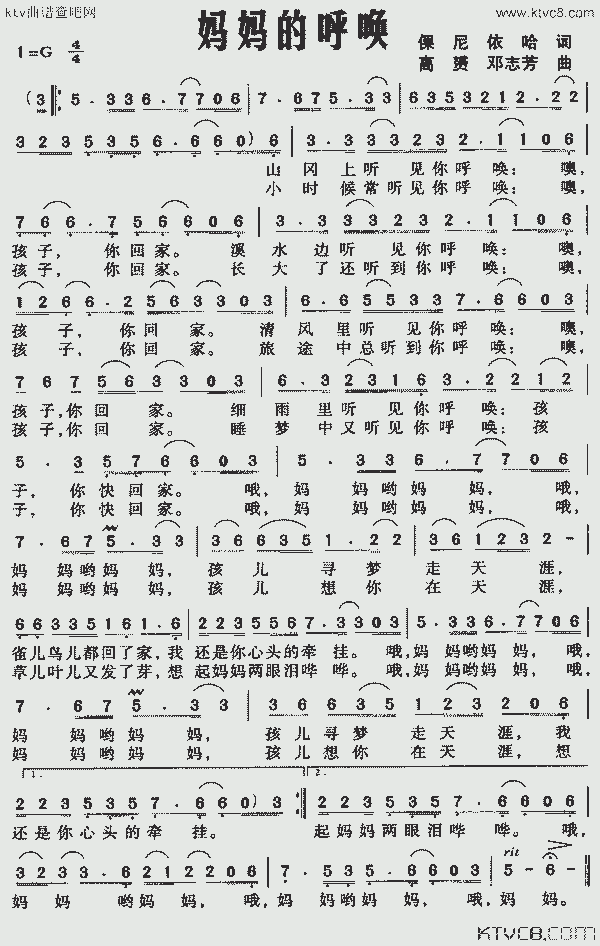 ktv曲谱查吧网
www.ktvc8.com
妈妈的呼唤
1=G 4/4
倮尼依哈 词
高赟 邓志芳 曲
(3 5·336·7706 7·675·33 6353212·22
3235356·660) 6 3·333232·1106
山冈上听见你呼唤：噢，
小时候常听见你呼唤：噢，
766·756606 3·333232·1106
孩子，你回家。溪水边听见你呼唤：噢，
孩子，你回家。长大了还听到你呼唤：噢，
1266·2563303 6·655337·6603
孩子，你回家。清风里听见你呼唤：噢，
孩子，你回家。旅途中总听到你呼唤：噢，
767563303 6·323163·2212
孩子，你回家。细雨里听见你呼唤：孩
孩子，你回家。睡梦中又听见你呼唤：孩
5·3576603 5·336·7706
子，你快回家。哦，妈妈哟妈妈，哦，
子，你快回家。哦，妈妈哟妈妈，哦，
7·675·33 366351·22 361232-
妈妈哟妈妈，孩儿寻梦走天涯，
妈妈哟妈妈，孩儿想你在天涯，
66335161·6 2235567·3303 5·336·7706
雀儿鸟儿都回了家，我还是你心头的牵挂。哦，妈妈哟妈妈，哦，
草儿叶儿又发了芽，想起妈妈两眼泪哗哗。哦，妈妈哟妈妈，哦，
7·675·33 36635123206
妈妈哟妈妈，孩儿寻梦走天涯，我
妈妈哟妈妈，孩儿想你在天涯，想
1. 2.
2235357·660) 3 2235357·6606
还是你心头的牵挂。起妈妈两眼泪哗哗。哦，
rit
3233·6212206 7·535·603 5-6-
妈妈哟妈妈，哦，妈妈哟妈妈，哦，妈妈。
KTVC8.COM